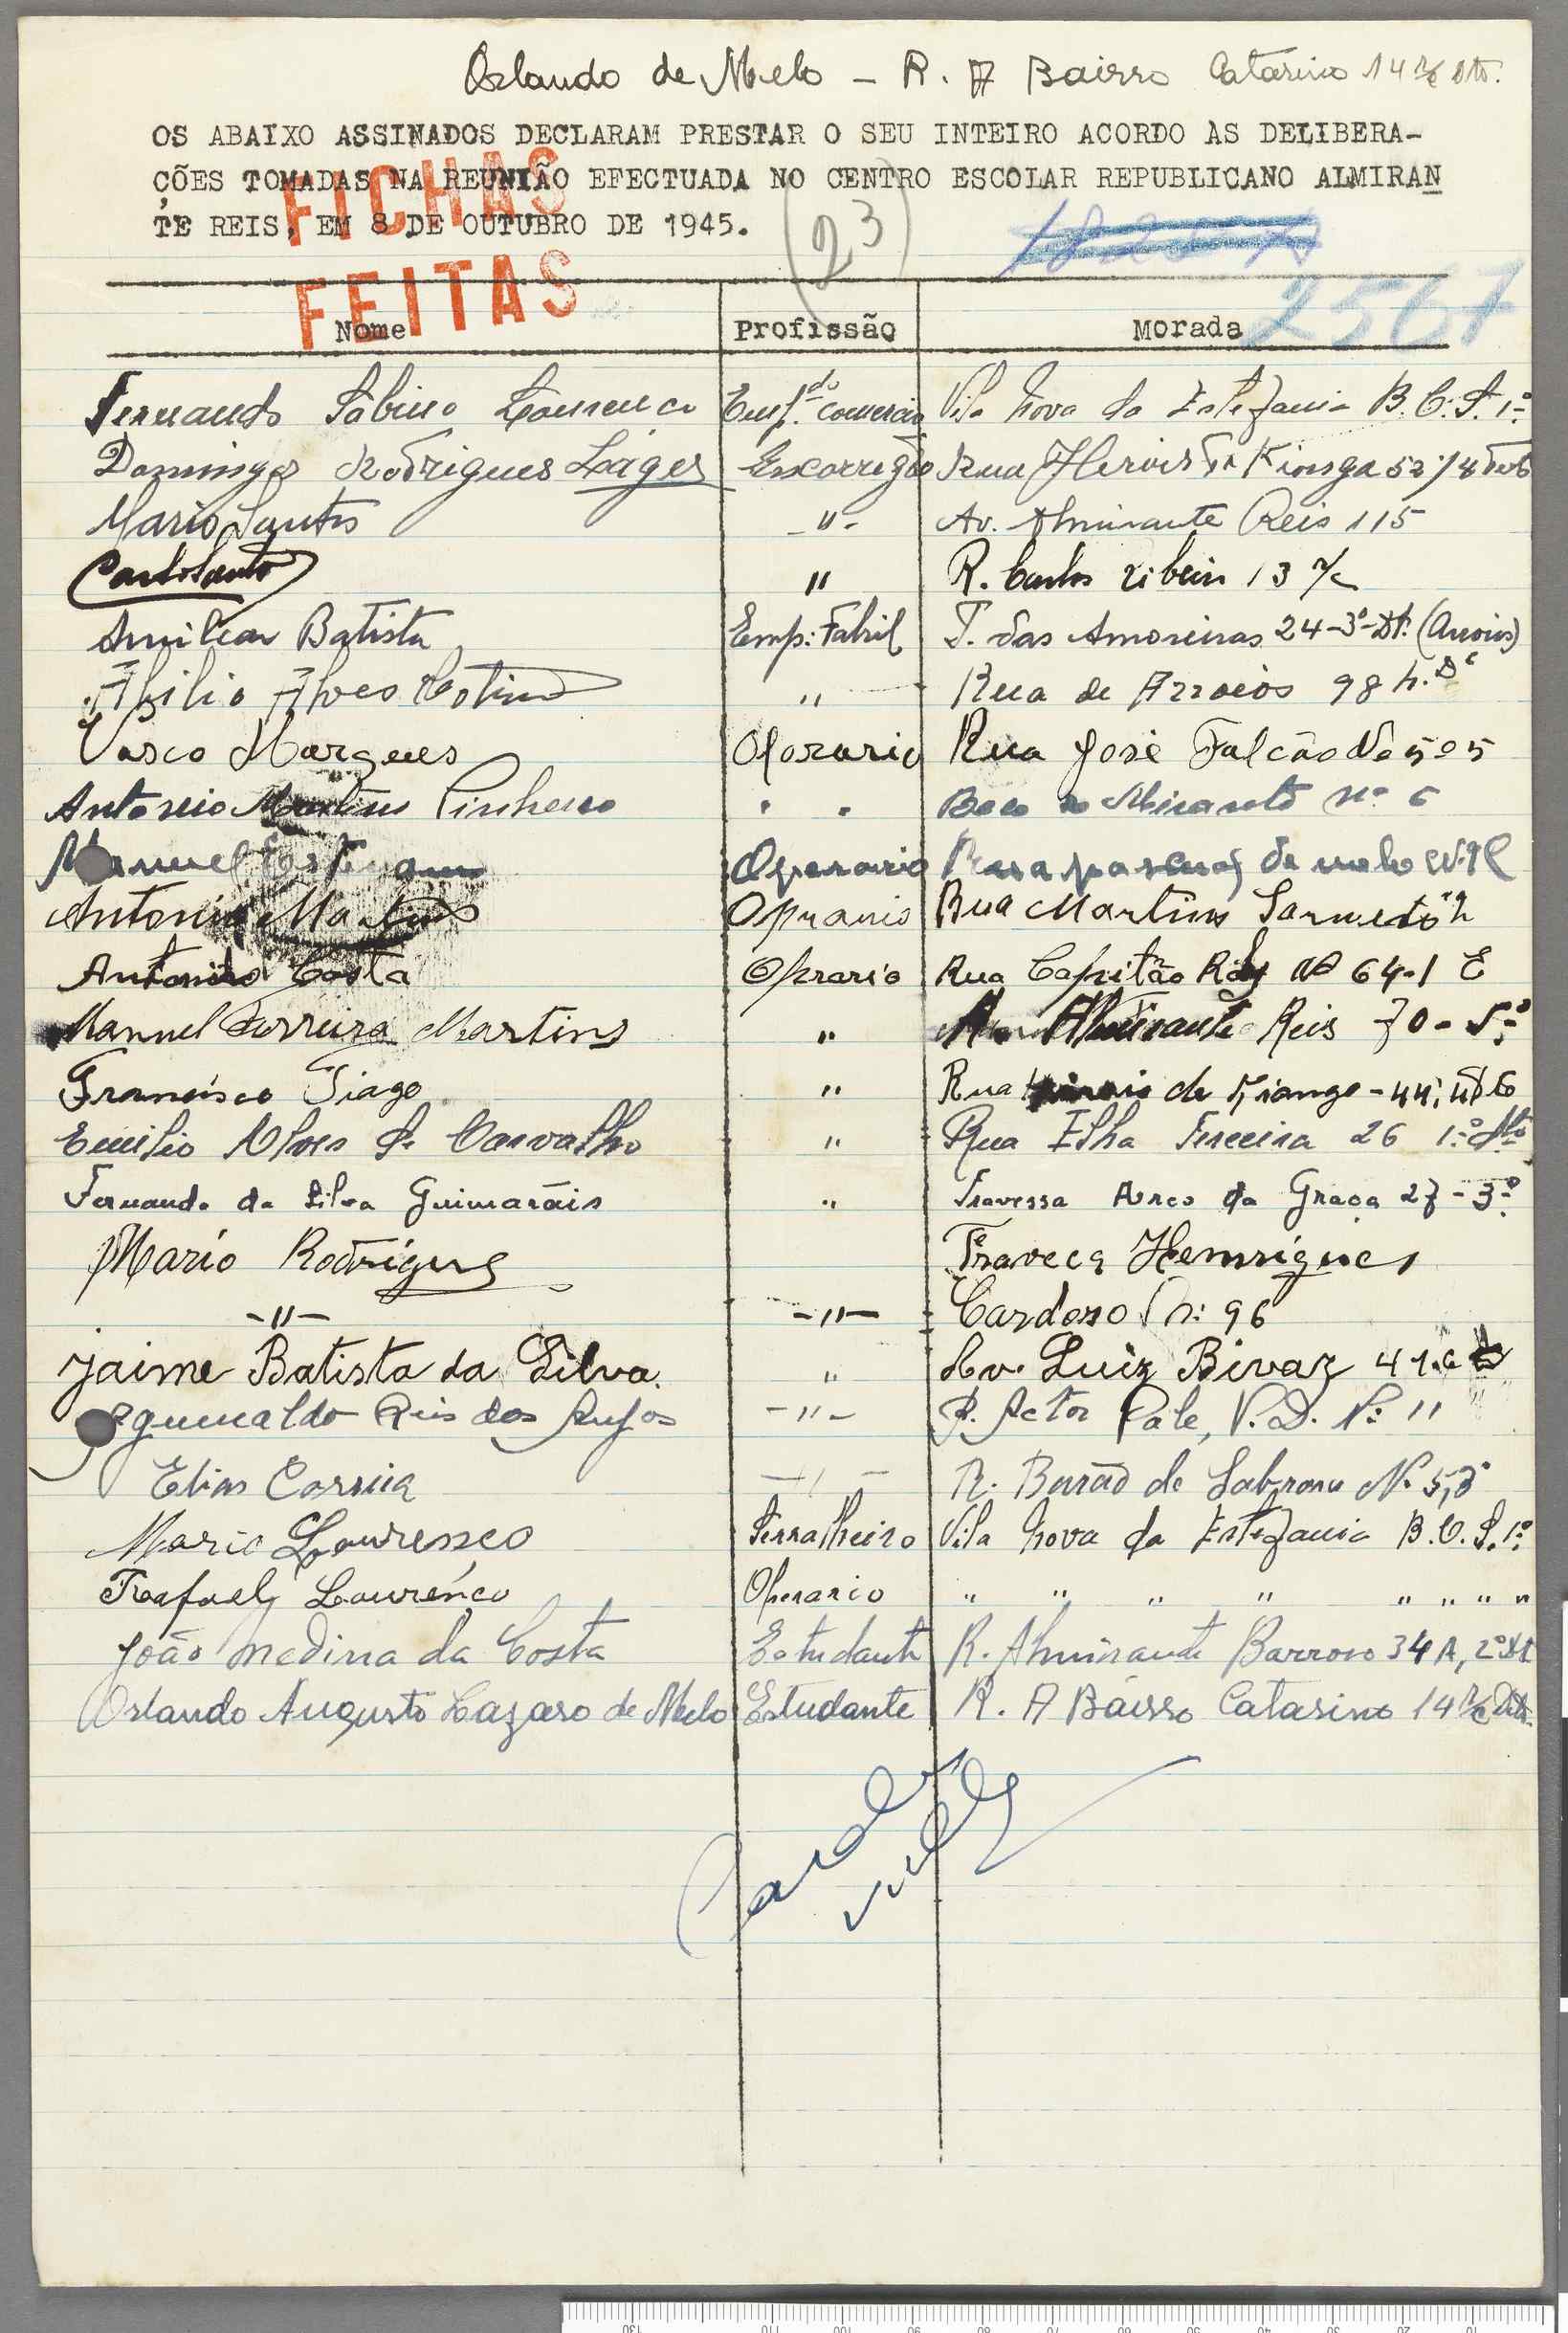 Orlando de Melo - R. A Bairro Catarino 14 r/c Dto.
OS ABAIXO ASSINADOS DECLARAM PRESTAR O SEU INTEIRO ACORDO ÀS DELIBERA-
ÇÕES TOMADAS NA REUNIÃO EFECTUADA NO CENTRO ESCOLAR REPUBLICANO ALMIRAN
TE REIS, EM 8 DE OUTUBRO DE 1945.
FICHAS
(23)
FEITAS
2567
Nome Profissão Morada
Fernando Sabino Lourenço Empdo. comercio Vila Nova da Estefania B. C. S. 1º
Domingos Rodrigues Lages Rua Herois de Kionga 52
Mario Santos -"- Av. Almirante Reis 115
" R. Carlos Ribeiro 13 r/c
Amilcar Batista Emp: Fabril T. das Amoreiras 24-3º-Dt. (Arroios)
Abilio Alves " Rua de Arroios 98
Vasco Marques Oporario Rua José Falcão Nº 5
Antonio Martins Pinheiro " " Beco do Mirante nº 6
Manuel Operario Rua de melo
Antonio Martins Rua Martins Sarmento
Antonio Costa Oprario Rua Capitão Nº 64-1 E
Manuel Ferreira Martins " Almirante Reis 70-5º
Francisco Tiago " Rua de 44,
Emilio Alves de Carvalho " Rua Ilha Terceira 26 1º Dto
Fernando da Silva Guimarãis " Travessa Arco da Graça 27-3º
Mario Rodrigues Traveca Henriques
-"- -"- Cardoso n: 96
Jaime Batista da Silva. " Av. Luiz Bivar 41
Reis dos -"- R. Actor Vale, V. D. Nº 11
Elias Correia -"- R. Barão de Sabrosa Nº
Mario Lourenço Serralheiro Vila Nova da Estefania B. C. S. 1º
Rafael Lourenço Operario " " " " " " " "
João Medina da Costa Estudante R. Almirante Barroso 34 A, 2º Dt
Orlando Augusto Lazaro de Melo Estudante R. A Bairro Catarino 14 r/c Dto.